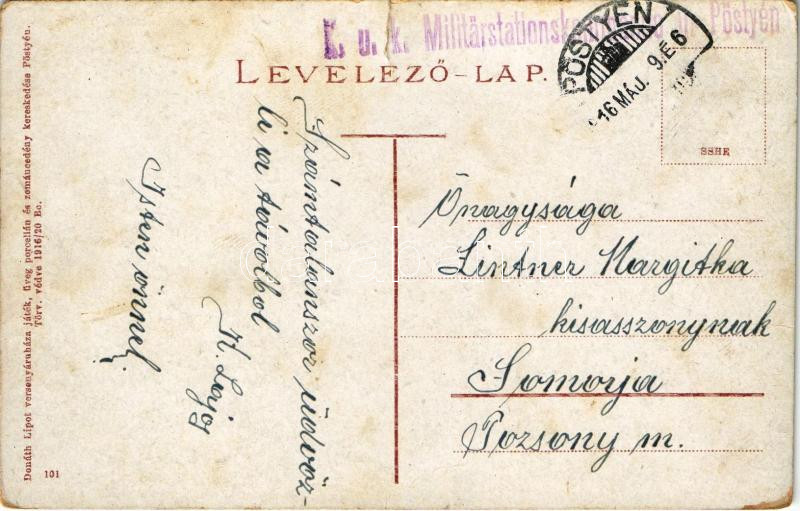 K. u. k. Militärstationskommando in Pöstyén
LEVELEZŐ-LAP.
PÖSTYÉN
916 MÁJ. 9. E 6
SSHE
Számtalanszor üdvöz-
li a távolból
K. Lajos
Isten önnel.
Önagysága
Lintner Margitka
kisasszonynak
Somorja
Pozsony m.
Donáth Lipot versenyáruháza játék, üveg porcellán és zománcedény kereskedése Pöstyén.
Törv. védve 1916/20 Bo.
101